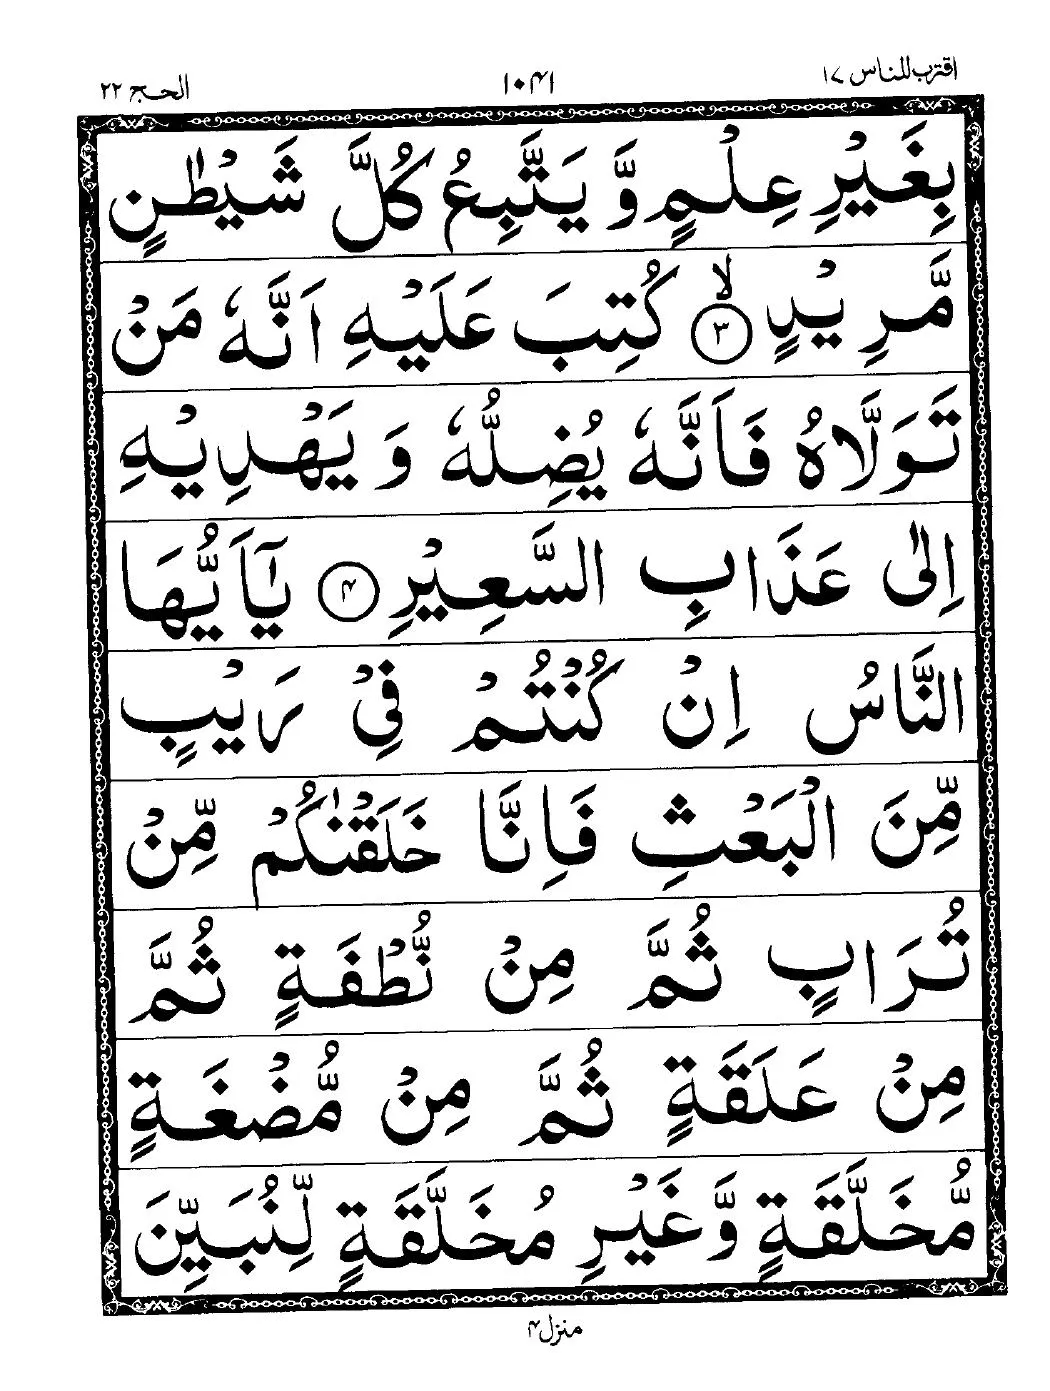 اقترب للناس ١٧
١٠۴١
الحج ٢٢
بِغَيْرِ عِلْمٍ وَّ يَتَّبِعُ كُلَّ شَيْطٰنٍ
مَّرِيْدٍ ۙ‏ ﴿٣﴾ كُتِبَ عَلَيْهِ اَنَّهٗ مَنْ
تَوَلَّاهُ فَاَنَّهٗ يُضِلُّهٗ وَ يَهْدِيْهِ
اِلٰى عَذَابِ السَّعِيْرِ ﴿۴﴾ يٰۤاَيُّهَا
النَّاسُ اِنْ كُنْتُمْ فِيْ رَيْبٍ
مِّنَ الْبَعْثِ فَاِنَّا خَلَقْنٰكُمْ مِّنْ
تُرَابٍ ثُمَّ مِنْ نُّطْفَةٍ ثُمَّ
مِنْ عَلَقَةٍ ثُمَّ مِنْ مُّضْغَةٍ
مُّخَلَّقَةٍ وَّغَيْرِ مُخَلَّقَةٍ لِّنُبَيِّنَ
منزل ۴